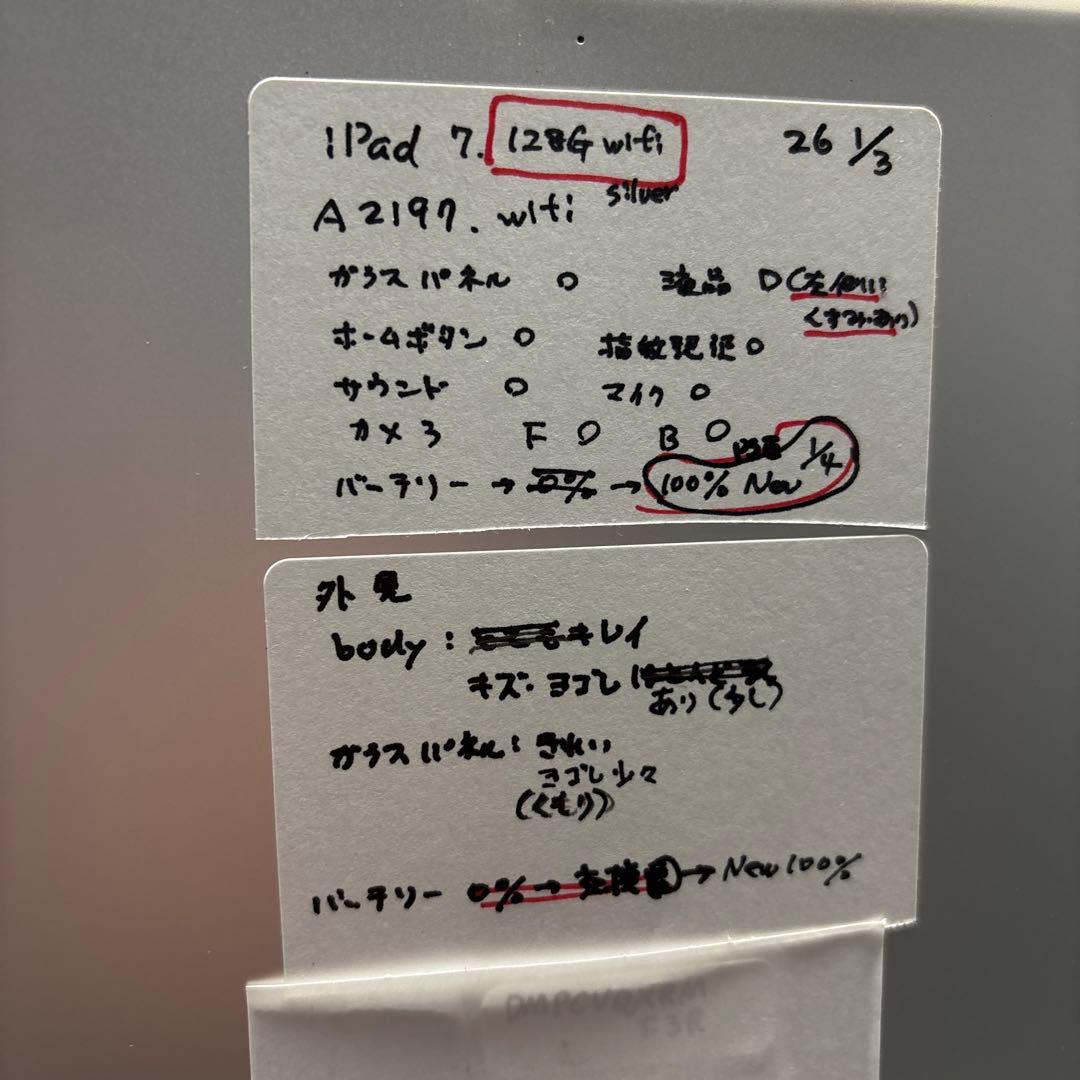 iPad 7. 128G wifi 26 1/3
A2197. wifi silver
ガラスパネル ○ 液晶 ○(左側に
くすみあり)
ホームボタン ○ 指紋認証 ○
サウンド ○ マイク ○
カメラ F ○ B ○
バッテリー → 0% → 100% New 1/4
外見
body: キレイ
キズ・ヨゴレ
あり(少し)
ガラスパネル: きれい
ヨゴレ少々
(くもり)
バッテリー 0% → 交換 → New 100%